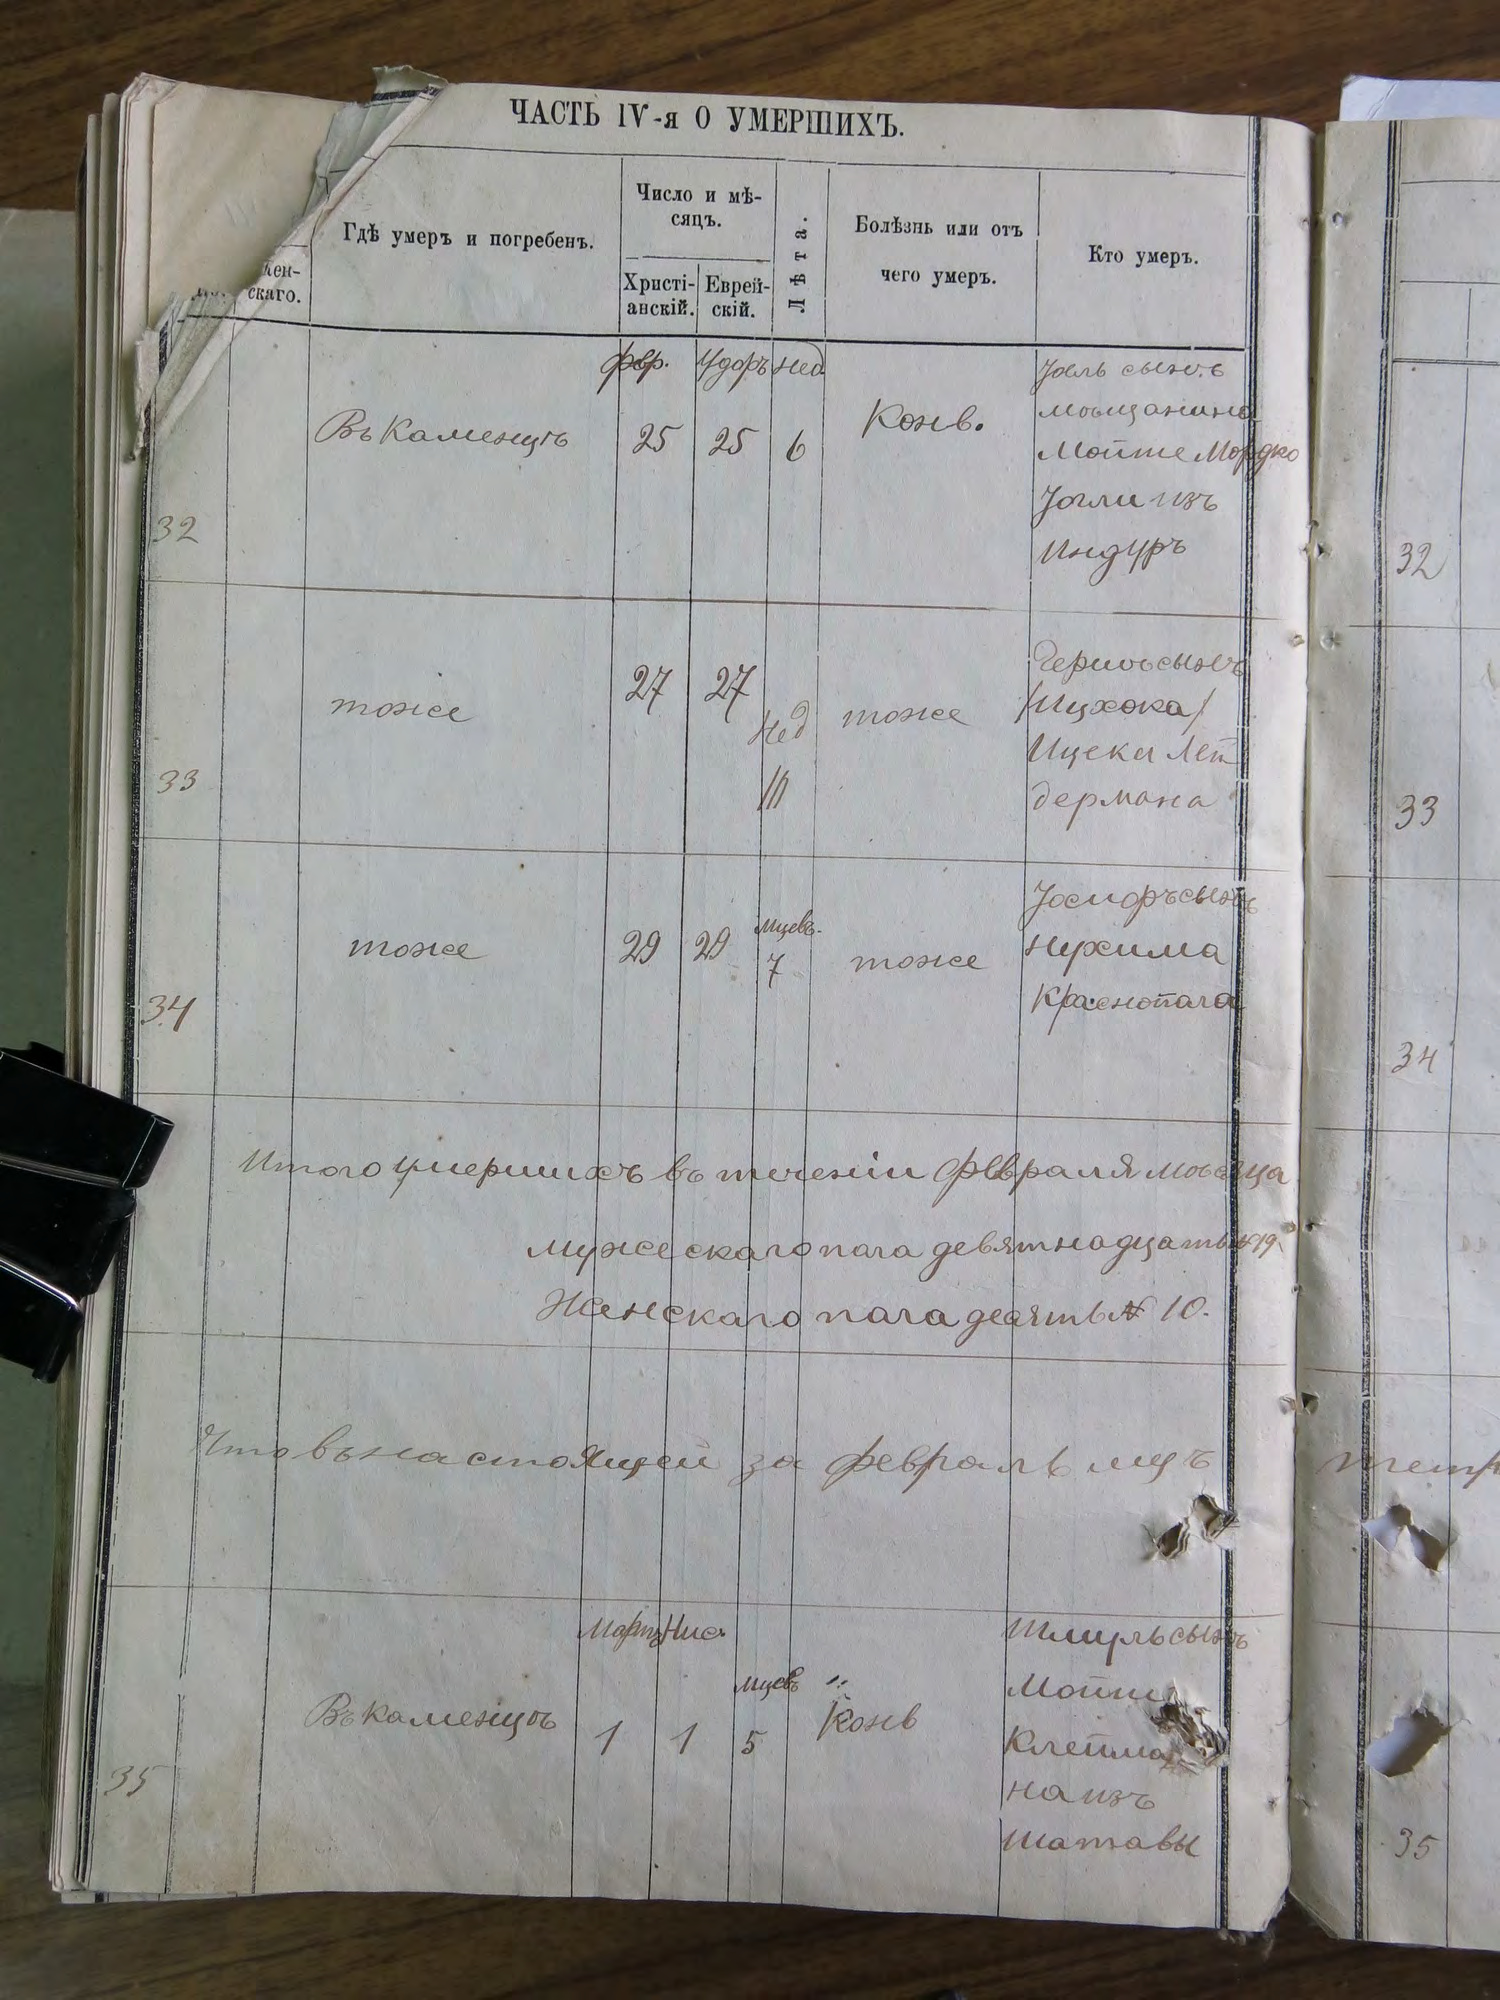 ЧАСТЬ IV-я О УМЕРШИХЪ.
жен-
скаго.
Гдѣ умеръ и погребенъ.
Число и мѣ-
сяцъ.
Христі-
анскій.
Еврей-
скій.
Лѣта.
Болѣзнь или отъ
чего умеръ.
Кто умеръ.
32
Въ Каменцѣ
фвр. 25
Удоръ 25
нед 6
Конв.
Іосль сынъ
мѣщанина
Мойше Мордко
Іосли изъ
Индуръ
32
33
тоже
27
27
нед
тоже
Гершъ сынъ
/Ицхока/
Ицека Лей
дермана
33
34
тоже
29
29
мцевъ. 7
тоже
Іосифъ сынъ
Нухима
Краснопола
34
Итого умершихъ въ теченіи февраля мѣсяца
мужескаго пола девятнадцать № 19.
Женскаго пола десять № 10.
Что въ настоящей за февраль мцъ
35
Въ Каменцѣ
Мартъ 1
Нис. 1
мцевъ 5
Конв
Шмуль сынъ
Мойш
Клейма
на изъ
Шатавы
35